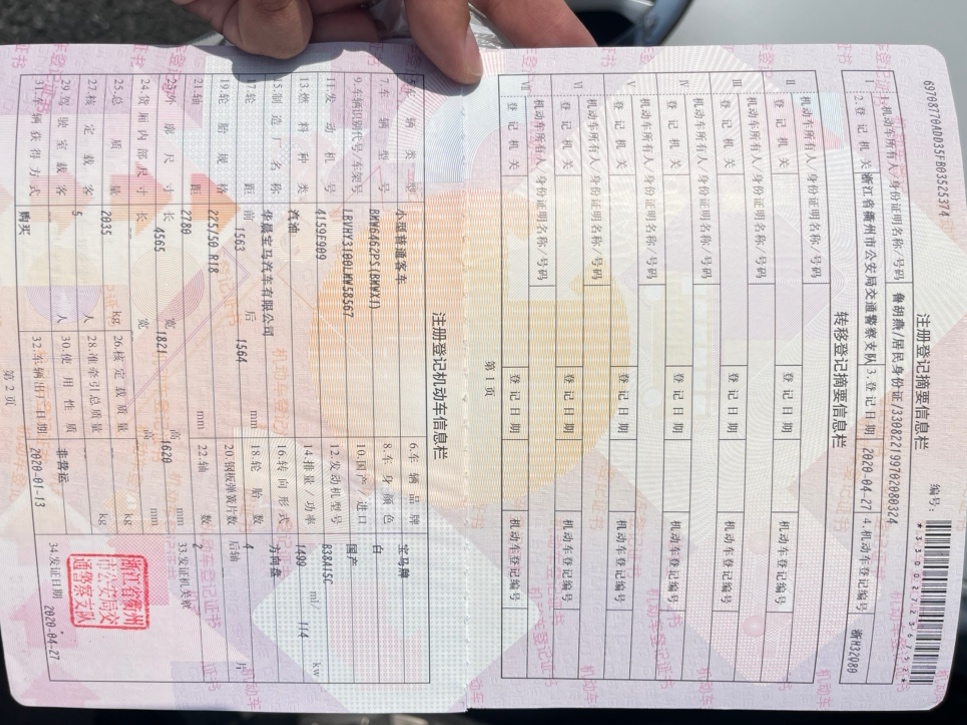 69708770ADD35FB03525374
编号:
注册登记摘要信息栏
1.机动车所有人/身份证明名称/号码 鲁胡燕/居民身份证/330822199702080324
2.登记机关 浙江省衢州市公安局交通警察支队 3.登记日期 2020-04-27 4.机动车登记编号 浙H32Q80
转移登记摘要信息栏
II 机动车所有人/身份证明名称/号码
登记机关 登记日期 机动车登记编号
III 机动车所有人/身份证明名称/号码
登记机关 登记日期 机动车登记编号
IV 机动车所有人/身份证明名称/号码
登记机关 登记日期 机动车登记编号
V 机动车所有人/身份证明名称/号码
登记机关 登记日期 机动车登记编号
VI 机动车所有人/身份证明名称/号码
登记机关 登记日期 机动车登记编号
VII 机动车所有人/身份证明名称/号码
登记机关 登记日期 机动车登记编号
第1页
注册登记机动车信息栏
5.车辆类型 小型普通客车 6.车辆品牌 宝马牌
7.车辆型号 BMW6462PS(BMWX1) 8.车身颜色 白
9.车辆识别代号/车架号 LBVHY3100LMW58567 10.国产/进口 国产
11.发动机号 4159F909 12.发动机型号 B38A15C
13.燃料种类 汽油 14.排量/功率 1499 ml/ 114 kw
15.制造厂名称 华晨宝马汽车有限公司 16.转向形式 方向盘
17.轮距 前 1563 后 1564 mm 18.轮胎数 4
19.轮胎规格 225/50 R18 20.钢板弹簧片数 后轴 片
21.轴距 2780 mm 22.轴数 2
23.外廓尺寸 长 4565 宽 1821 高 1620 mm 33.发证机关章
24.货厢内部尺寸 长 宽 高 mm
25.总质量 2035 kg 26.核定载质量 kg
27.核定载客 5 人 28.准牵引总质量 kg
29.驾驶室载客 人 30.使用性质 非营运
31.车辆获得方式 购买 32.车辆出厂日期 2020-01-13 34.发证日期 2020-04-27
浙江省衢州
市公安局交
通警察支队
第2页